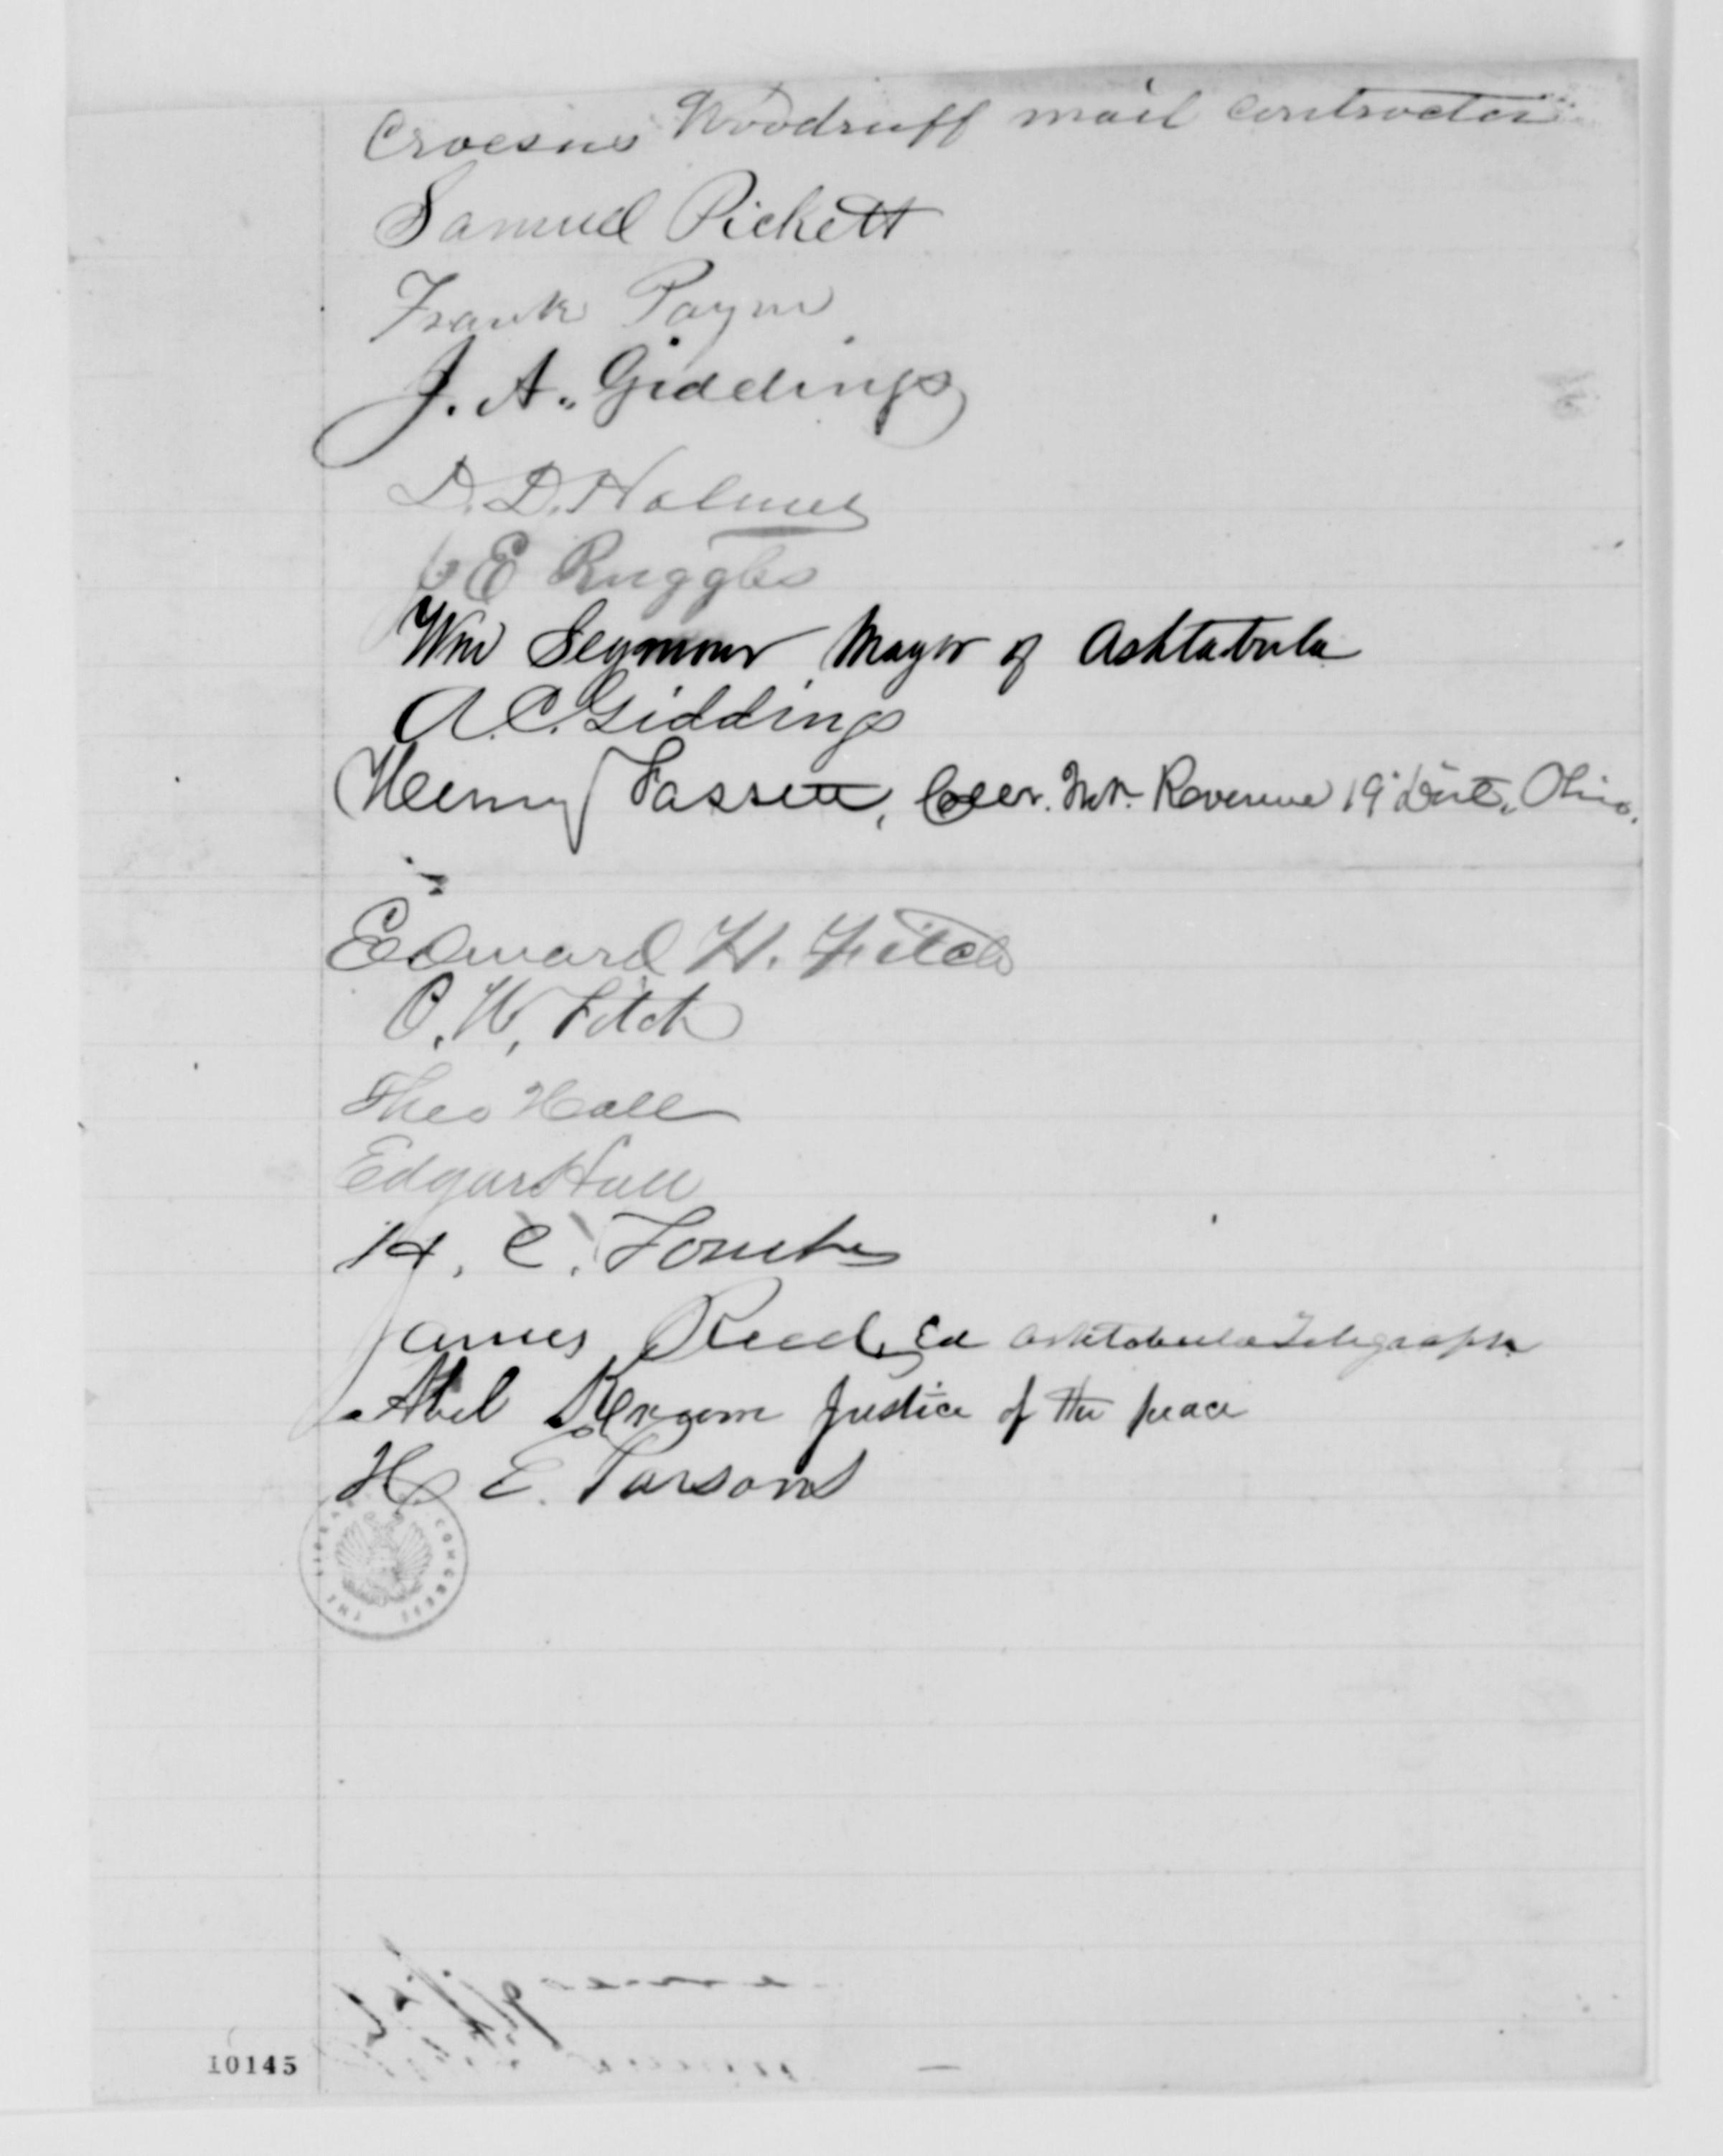 Croesus Woodruff mail Contractor
Samuel Pickett
Frank Payne
J. A. Giddings
D. D. Holmes
E Ruggles
Wm Seymour Mayor of Ashtabula
A. C. Giddings
Henry Fassett, Coll. Int. Revenue 19" Dist. Ohio.
Edward H. Fitch
O. W. Fitch
Theo Hall
Edgar Hall
H. C. Tombes
James Reed, Ed Ashtabula Telegraph
Abel Krum Justice of the peace
H. E. Parsons
THE LIBRARY CONGRESS
10145